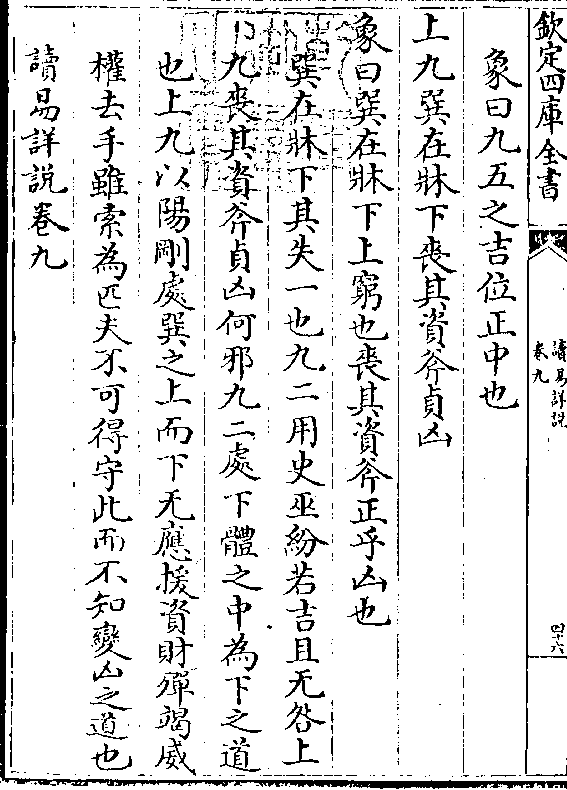 欽定四庫全書
讀易詳說
卷九
四十六
象曰九五之吉位正中也
上九巽在牀下喪其資斧貞凶
象曰巽在牀下上窮也喪其資斧正乎凶也
巽在牀下其失一也九二用史巫紛若吉且无咎上
九喪其資斧貞凶何邪九二處下體之中為下之道
也上九以陽剛處巽之上而下无應援資財殫竭威
權去手雖索為匹夫不可得守此而不知變凶之道也
讀易詳說卷九